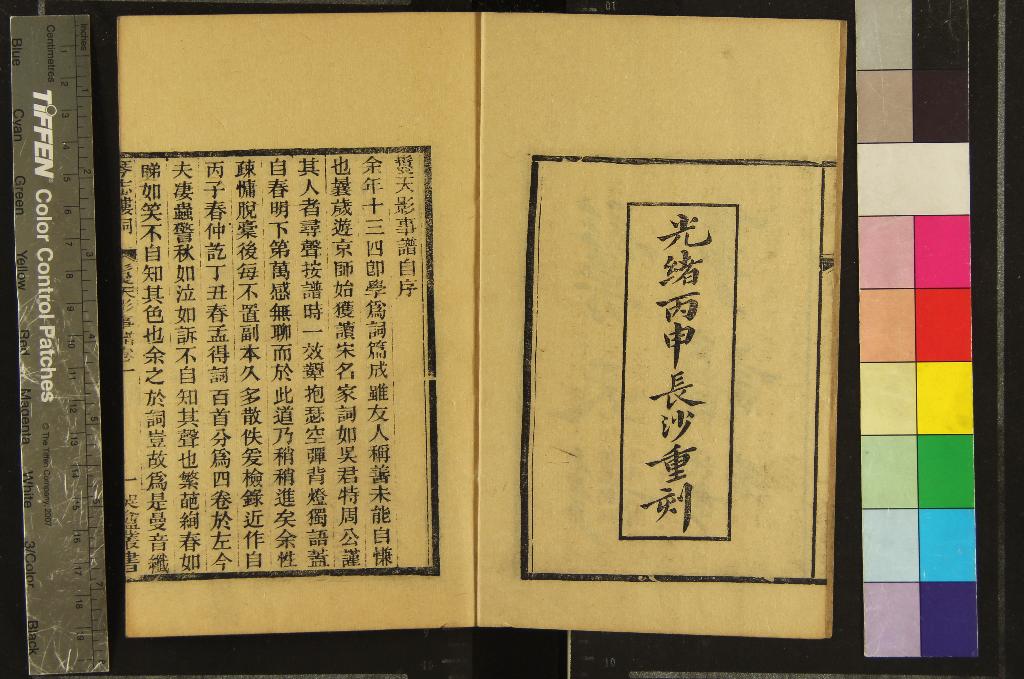 光緒丙申長沙重刻
鬘天影事譜自序
余年十三四卽學爲詞篇成雖友人稱善未能自慊
也曩歲遊京師始獲讀宋名家詞如吳君特周公謹
其人者尋聲按譜時一效顰抱瑟空彈背燈獨語蓋
自春明下第萬感無聊而於此道乃稍稍進矣余性
疎慵脫稾後每不置副本久多散佚爰檢錄近作自
丙子春仲訖丁丑春孟得詞百首分爲四卷於左今
夫凄蟲警秋如泣如訴不自知其聲也繁葩絢春如
睇如笑不自知其色也余之於詞豈故爲是曼音孅
影事譜卷一
一
叢書
Inches
Centimetres
TIFFEN Color Control Patches
© The Tiffen Company, 2007
Blue
Cyan
Green
Yellow
Red
Magenta
White
3/Color
Black